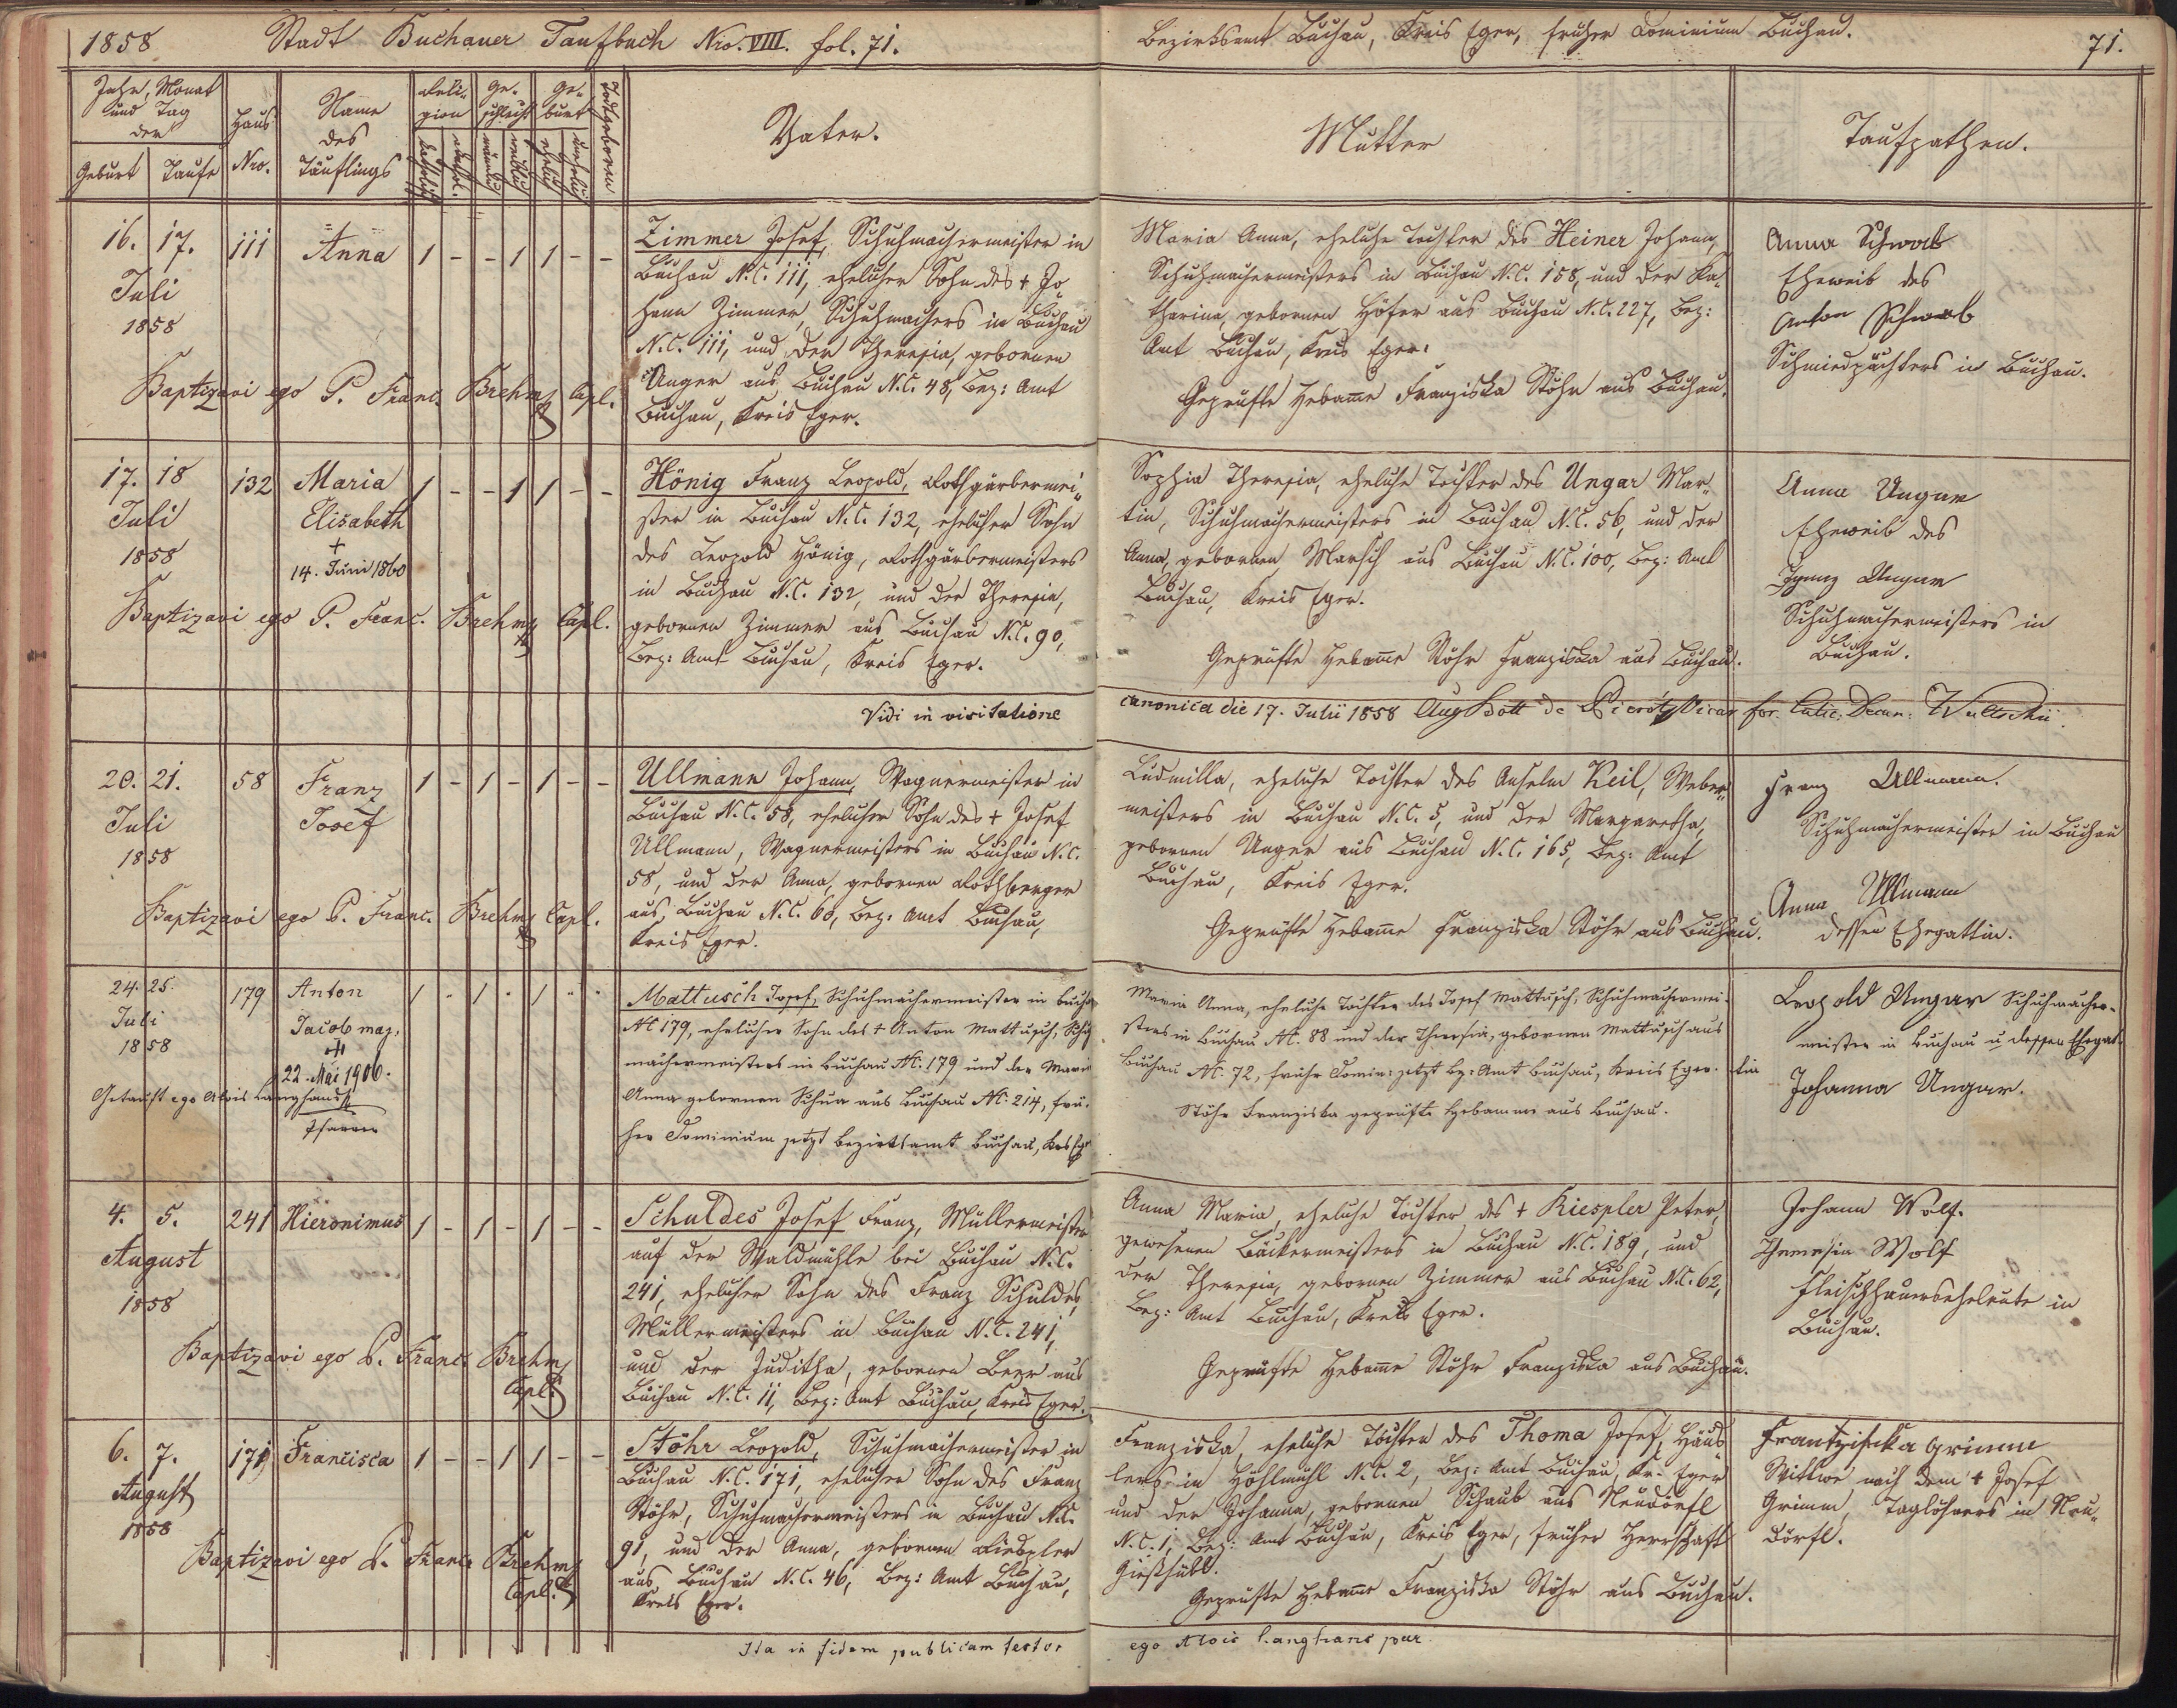 1858 Stadt Buchauer Taufbuch Nro. VIII. fol. 71.
Bezirksamt Buchau, Kreis Eger, früher Dominium Buchau. 71.
Jahr, Monat und Tag der
Geburt Taufe
Haus Nro.
Name des Täuflings
Religion
katholisch akathol.
Geschlecht
männlich weiblich
Geburt
ehelich unehelich
Todtgeboren
Vater.
Mutter
Taufpathen.
16. 17. 111 Anna 1 - - 1 1 - -
Juli
1858
Baptizavi ego P. Franc. Brehm Capl.
Zimmer Josef, Schuhmachermeister in
Buchau N.C. 111, ehelicher Sohn des + Jo
hann Zimmer, Schuhmachers in Buchau
N.C. 111, und der Theresia, gebornen
Unger aus Buchau N.C. 48, Bez: Amt
Buchau, Kreis Eger.
Maria Anna, eheliche Tochter des Heiner Johann,
Schuhmachermeisters in Buchau N.C. 158, und der Ka-
tharina, gebornen Höfer aus Buchau N.C. 227, Bez:
Amt Buchau, Kreis Eger.
Geprüfte Hebame Franziska Stöhr aus Buchau.
Anna Schwab
Eheweib des
Anton Schwab
Schmiedpächters in Buchau.
17. 18 132 Maria 1 - - 1 1 - -
Juli Elisabeth
1858 +
14. Juni 1860
Baptizavi ego P. Franc. Brehm Capl.
Hönig Franz Leopold, Rothgärbermei-
ster in Buchau N.C. 132, ehelicher Sohn
des Leopold Hönig, Rothgärbermeisters
in Buchau N.C. 132, und der Theresia,
gebornen Zimmer aus Buchau N.C. 90,
Bez: Amt Buchau, Kreis Eger.
Sophia Theresia, eheliche Tochter des Ungar Mar-
tin, Schuhmachermeisters in Buchau N.C. 56, und der
Anna, gebornen Marsch aus Buchau N.C. 100, Bez: Amt
Buchau, Kreis Eger.
Geprüfte Hebame Stöhr Franziska aus Buchau.
Anna Ungar
Eheweib des
Ignaz Ungar
Schuhmachermeisters in
Buchau.
Vidi in visitatione canonica die 17. Julii 1858 Aug
20. 21. 58 Franz 1 - 1 - 1 - -
Juli Josef
1858
Baptizavi ego P. Franc. Brehm Capl.
Ullmann Johann, Wagnermeister in
Buchau N.C. 58, ehelicher Sohn des + Josef
Ullmann, Wagnermeisters in Buchau N.C.
58, und der Anna, gebornen Rothberger
aus Buchau N.C. 60, Bez: Amt Buchau,
Kreis Eger.
Ludmilla, eheliche Tochter des Anselm Keil, Weber-
meisters in Buchau N.C. 5, und der Margaretha,
gebornen Unger aus Buchau N.C. 165, Bez: Amt
Buchau, Kreis Eger.
Geprüfte Hebame Franziska Stöhr aus Buchau.
Franz Ullmann.
Schuhmachermeister in Buchau
Anna Ullmann
dessen Ehegattin.
24. 25. 179 Anton 1 - 1 - 1 - -
Juli Jacob maj.
1858 +
22. Mai 1906.
Getauft ego Alois Langhans
Pfarrer
Mattusch Josef, Schuhmachermeister in Buchau
NC 179, ehelicher Sohn des + Anton Mattusch, Schuh
machermeisters in Buchau NC. 179 und der Maria
Anna gebornen Schua aus Buchau NC. 214, frü-
her Dominium jetzt Bezirksamt Buchau, Krs Eger
Maria Anna, eheliche Tochter des Josef Mattusch, Schuhmachermei-
sters in Buchau NC. 88 und der Theresia, gebornen Mattusch aus
Buchau NC. 72, früher Domin: jetzt Bz: Amt Buchau, Kreis Eger.
Stöhr Franziska geprüfte Hebamme aus Buchau.
Leopold Ungar Schuhmacher-
meister in Buchau u dessen Ehegat-
tin
Johanna Ungar.
4. 5. 241 Hieronimus 1 - 1 - 1 - -
August
1858
Baptizavi ego P. Franc. Brehm
Capl.
Schuldes Josef Franz, Müllermeister
auf der Waldmühle bei Buchau N.C.
241, ehelicher Sohn des Franz Schuldes,
Müllermeisters in Buchau N.C. 241,
und der Juditha, gebornen Beer aus
Buchau N.C. 11, Bez: Amt Buchau, Kreis Eger.
Anna Maria, eheliche Tochter des + Riespler Peter,
gewesenen Bäckermeisters in Buchau N.C. 189, und
der Theresia, gebornen Zimmer aus Buchau N.C. 62,
Bez: Amt Buchau, Kreis Eger.
Geprüfte Hebame Stöhr Franziska aus Buchau.
Johann Wolf.
Theresia Wolf
Fleischhauerseheleute in
Buchau.
6. 7. 171 Francisca 1 - - 1 1 - -
August
1858
Baptizavi ego P. Franc. Brehm
Capl.
Stöhr Leopold, Schuhmachermeister in
Buchau N.C. 171, ehelicher Sohn des Franz
Stöhr, Schuhmachermeisters in Buchau N.C.
91, und der Anna, gebornen Riespler
aus Buchau N.C. 46, Bez: Amt Buchau,
Kreis Eger.
Franziska, eheliche Tochter des Thoma Josef, Häus
lers in Höhlmühl N.C. 2, Bez: Amt Buchau, Kr. Eger
und der Johanna, gebornen Schaub aus Neudörfl
N.C. 1, Bez: Amt Buchau, Kreis Eger, früher Herrschaft
Gießhübl.
Geprüfte Hebame Franziska Stöhr aus Buchau.
Frantzischka Grimm
Wittwe nach dem + Josef
Grimm, Taglöhners in Neu-
dörfl.
Ita in fidem publicam testor ego Alois Langhans par.